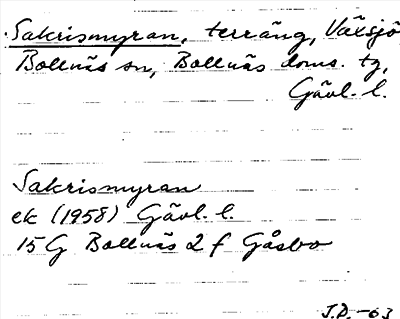 Sakrismyran, terräng, Växsjö
Bollnäs sn, Bollnäs doms. tg,
Gävl. l.
Sakrismyran
ek (1958) Gävl. l.
15 G Bollnäs 2 f Gåsbo
J.D. -63